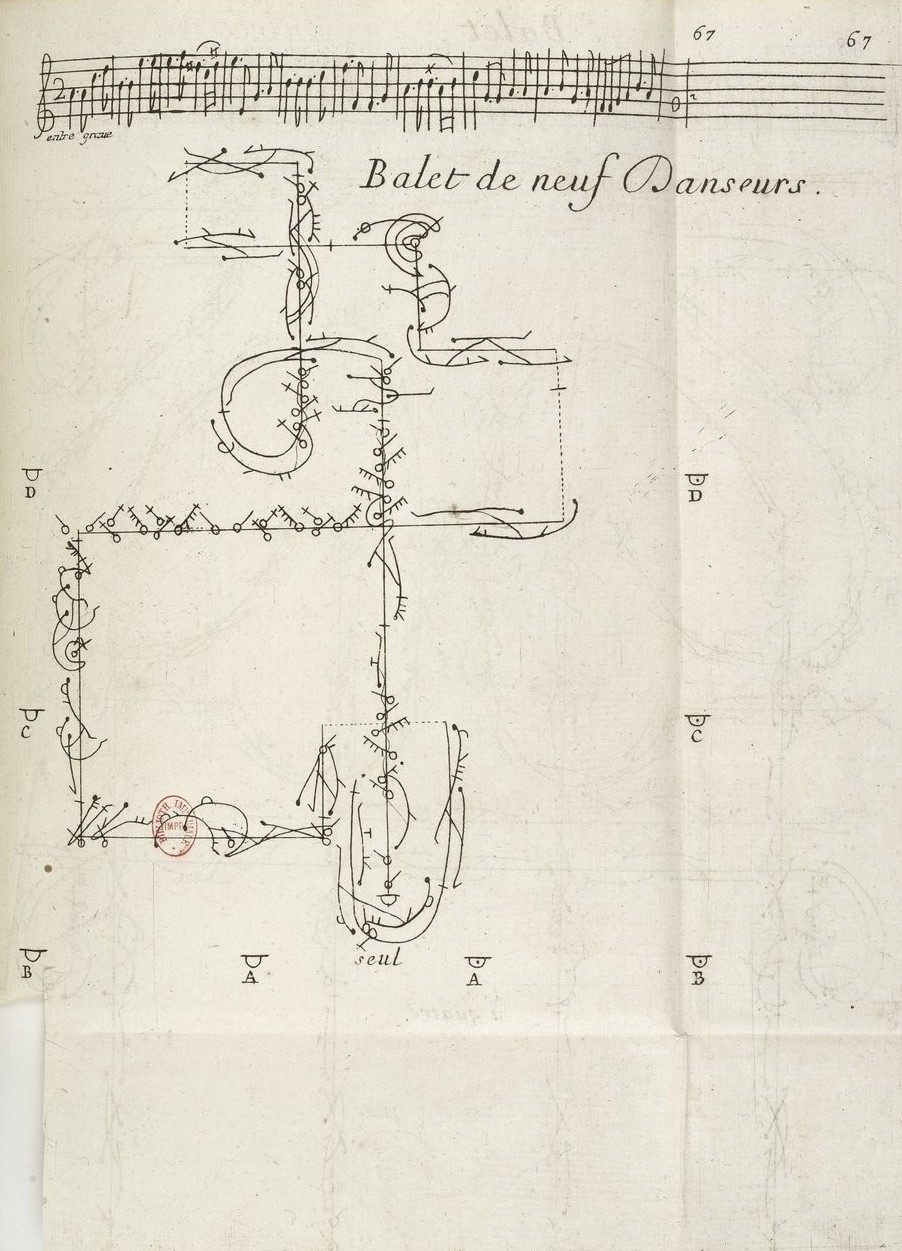 67
67
2
entre graue
Balet de neuf Danseurs.
D
D
C
C
seul
B
A
A
B